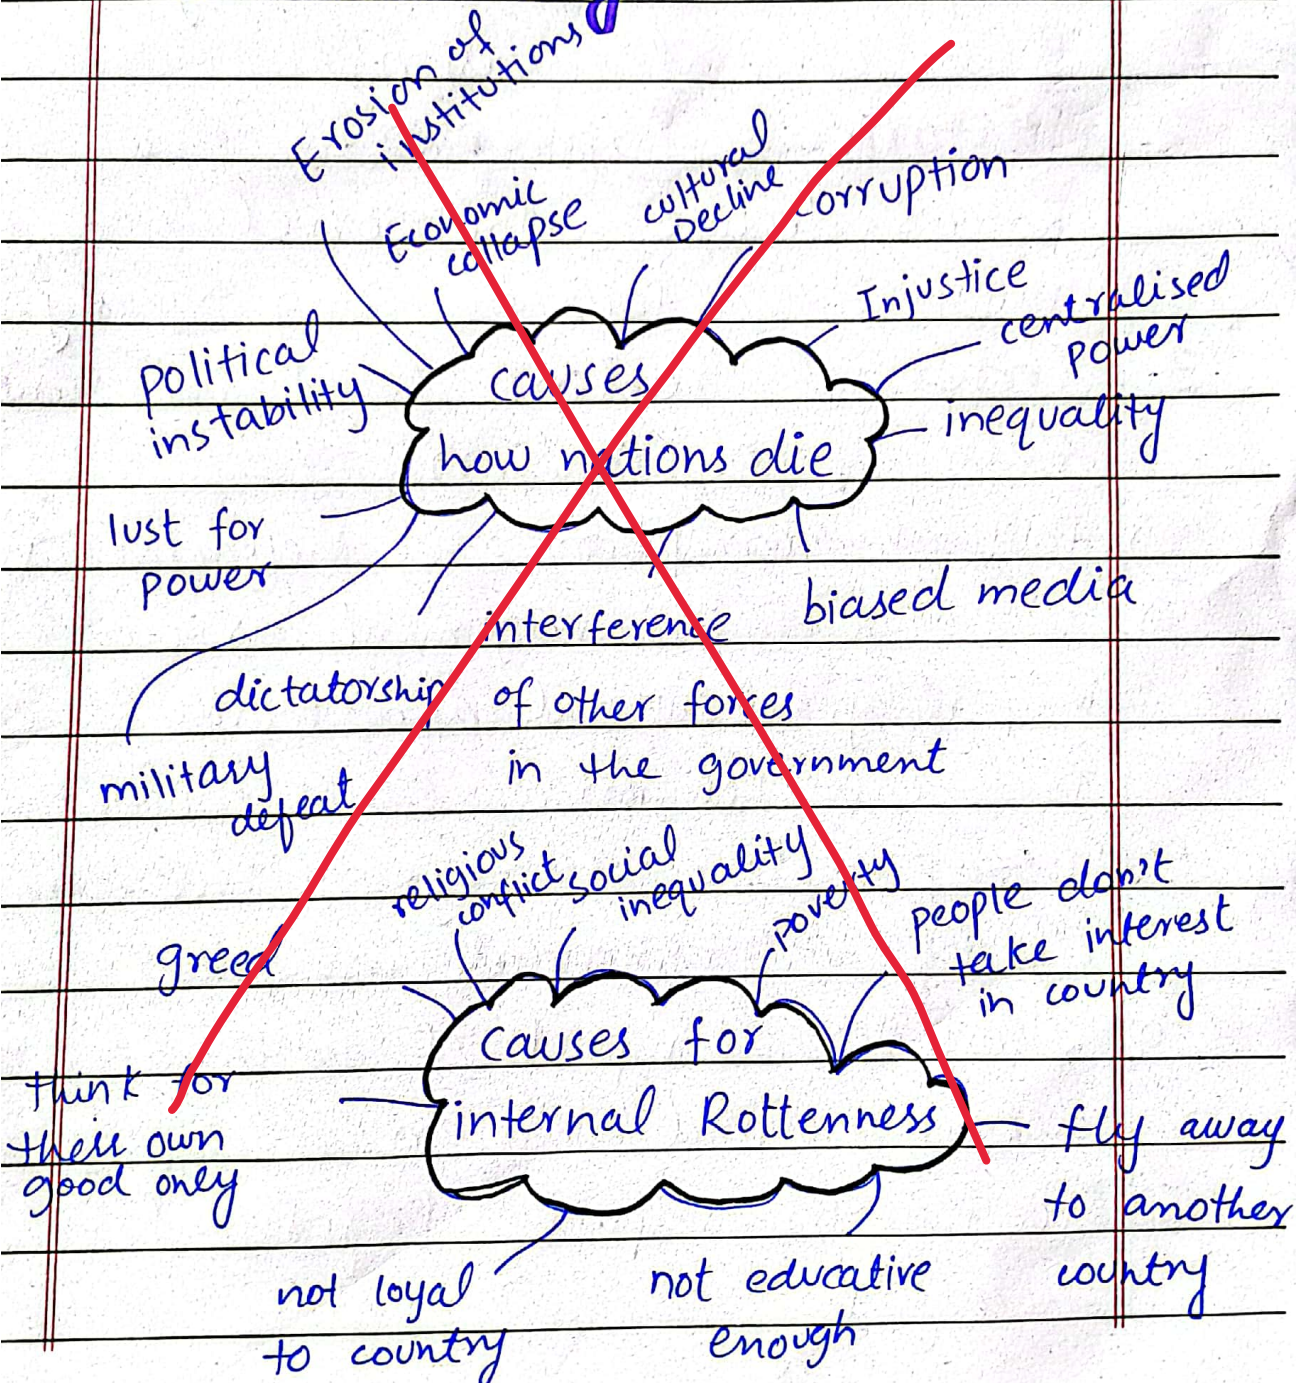 Erosion of
institutions
Economic
collapse
cultural
Decline
corruption
Injustice
centralised
power
inequality
political
instability
causes
how nations die
lust for
power
biased media
interference
of other forces
in the government
dictatorship
military
defeat
religious
conflict
social
inequality
poverty
people don't
take interest
in country
greed
causes for
internal Rottenness
think for
their own
good only
fly away
to another
country
not loyal
to country
not educative
enough